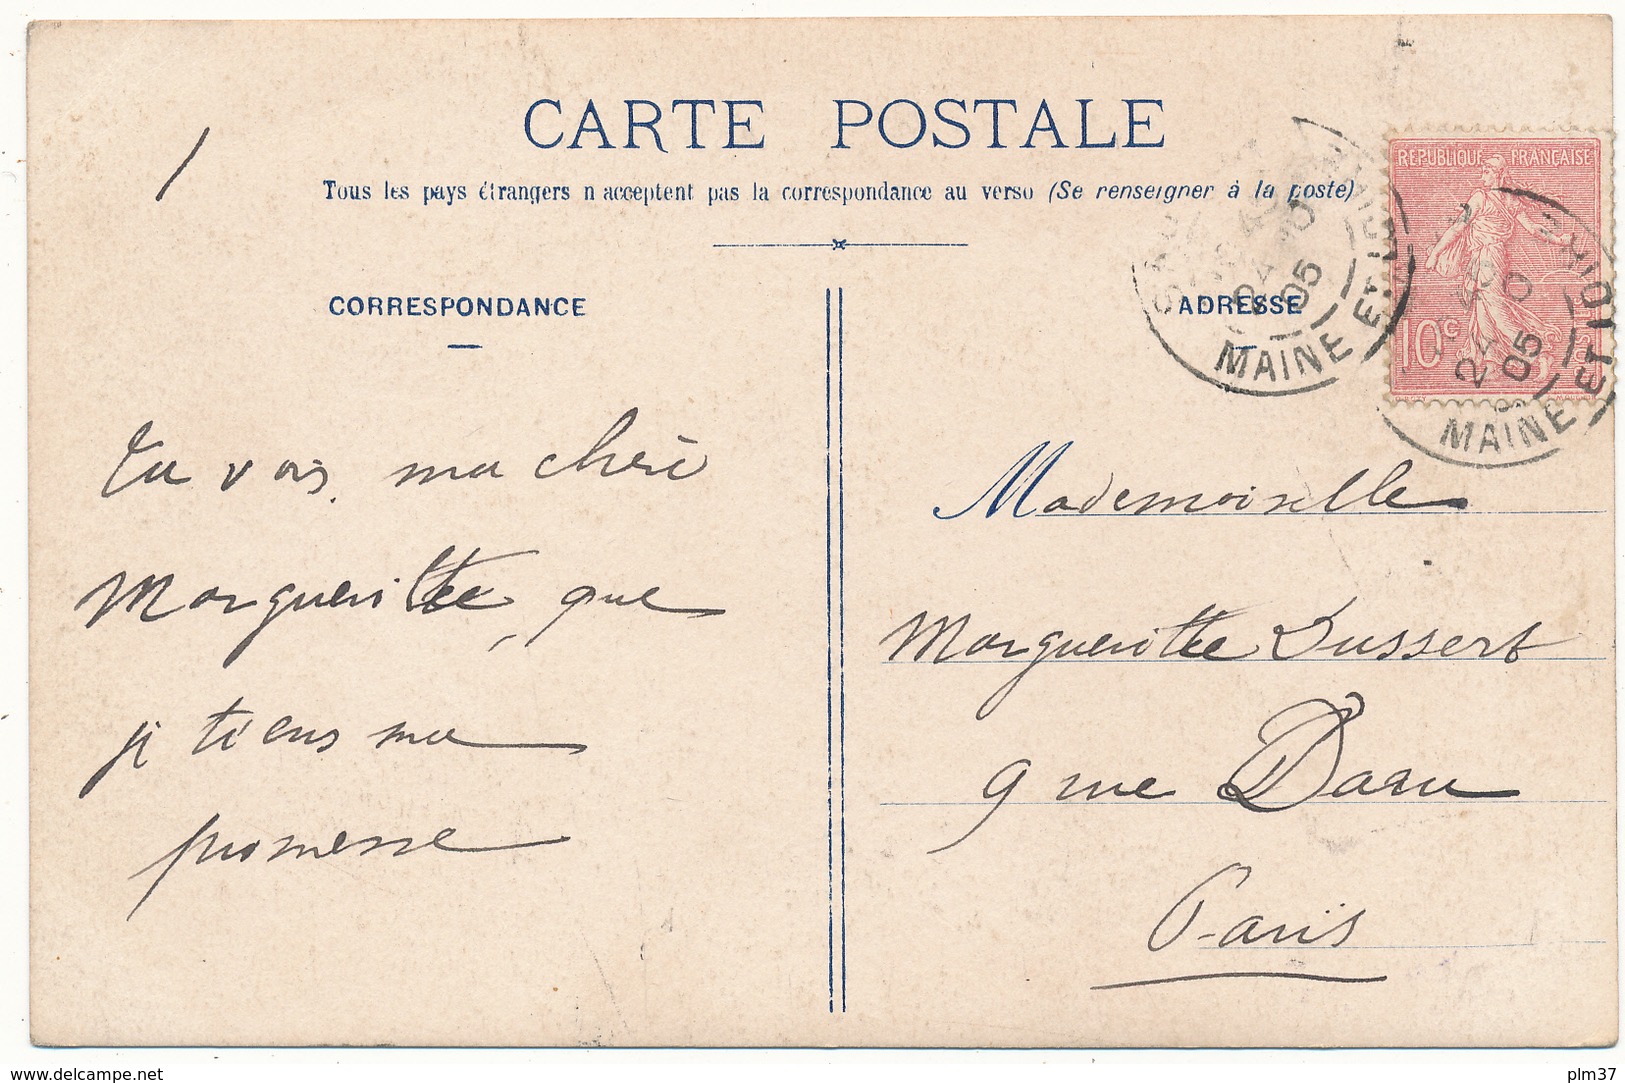 CARTE POSTALE
Tous les pays étrangers n acceptent pas la correspondance au verso (Se renseigner à la poste)
CORRESPONDANCE
ADRESSE
RÉPUBLIQUE FRANÇAISE
10c
MAINE ET LOIRE
24
05
MAINE ET LOIRE
24
05
Tu vois, ma chère
Margueritte, que
je tiens ma
promesse
Mademoiselle
Margueritte Dussert
9 rue Daru
Paris
www.delcampe.net
plm37